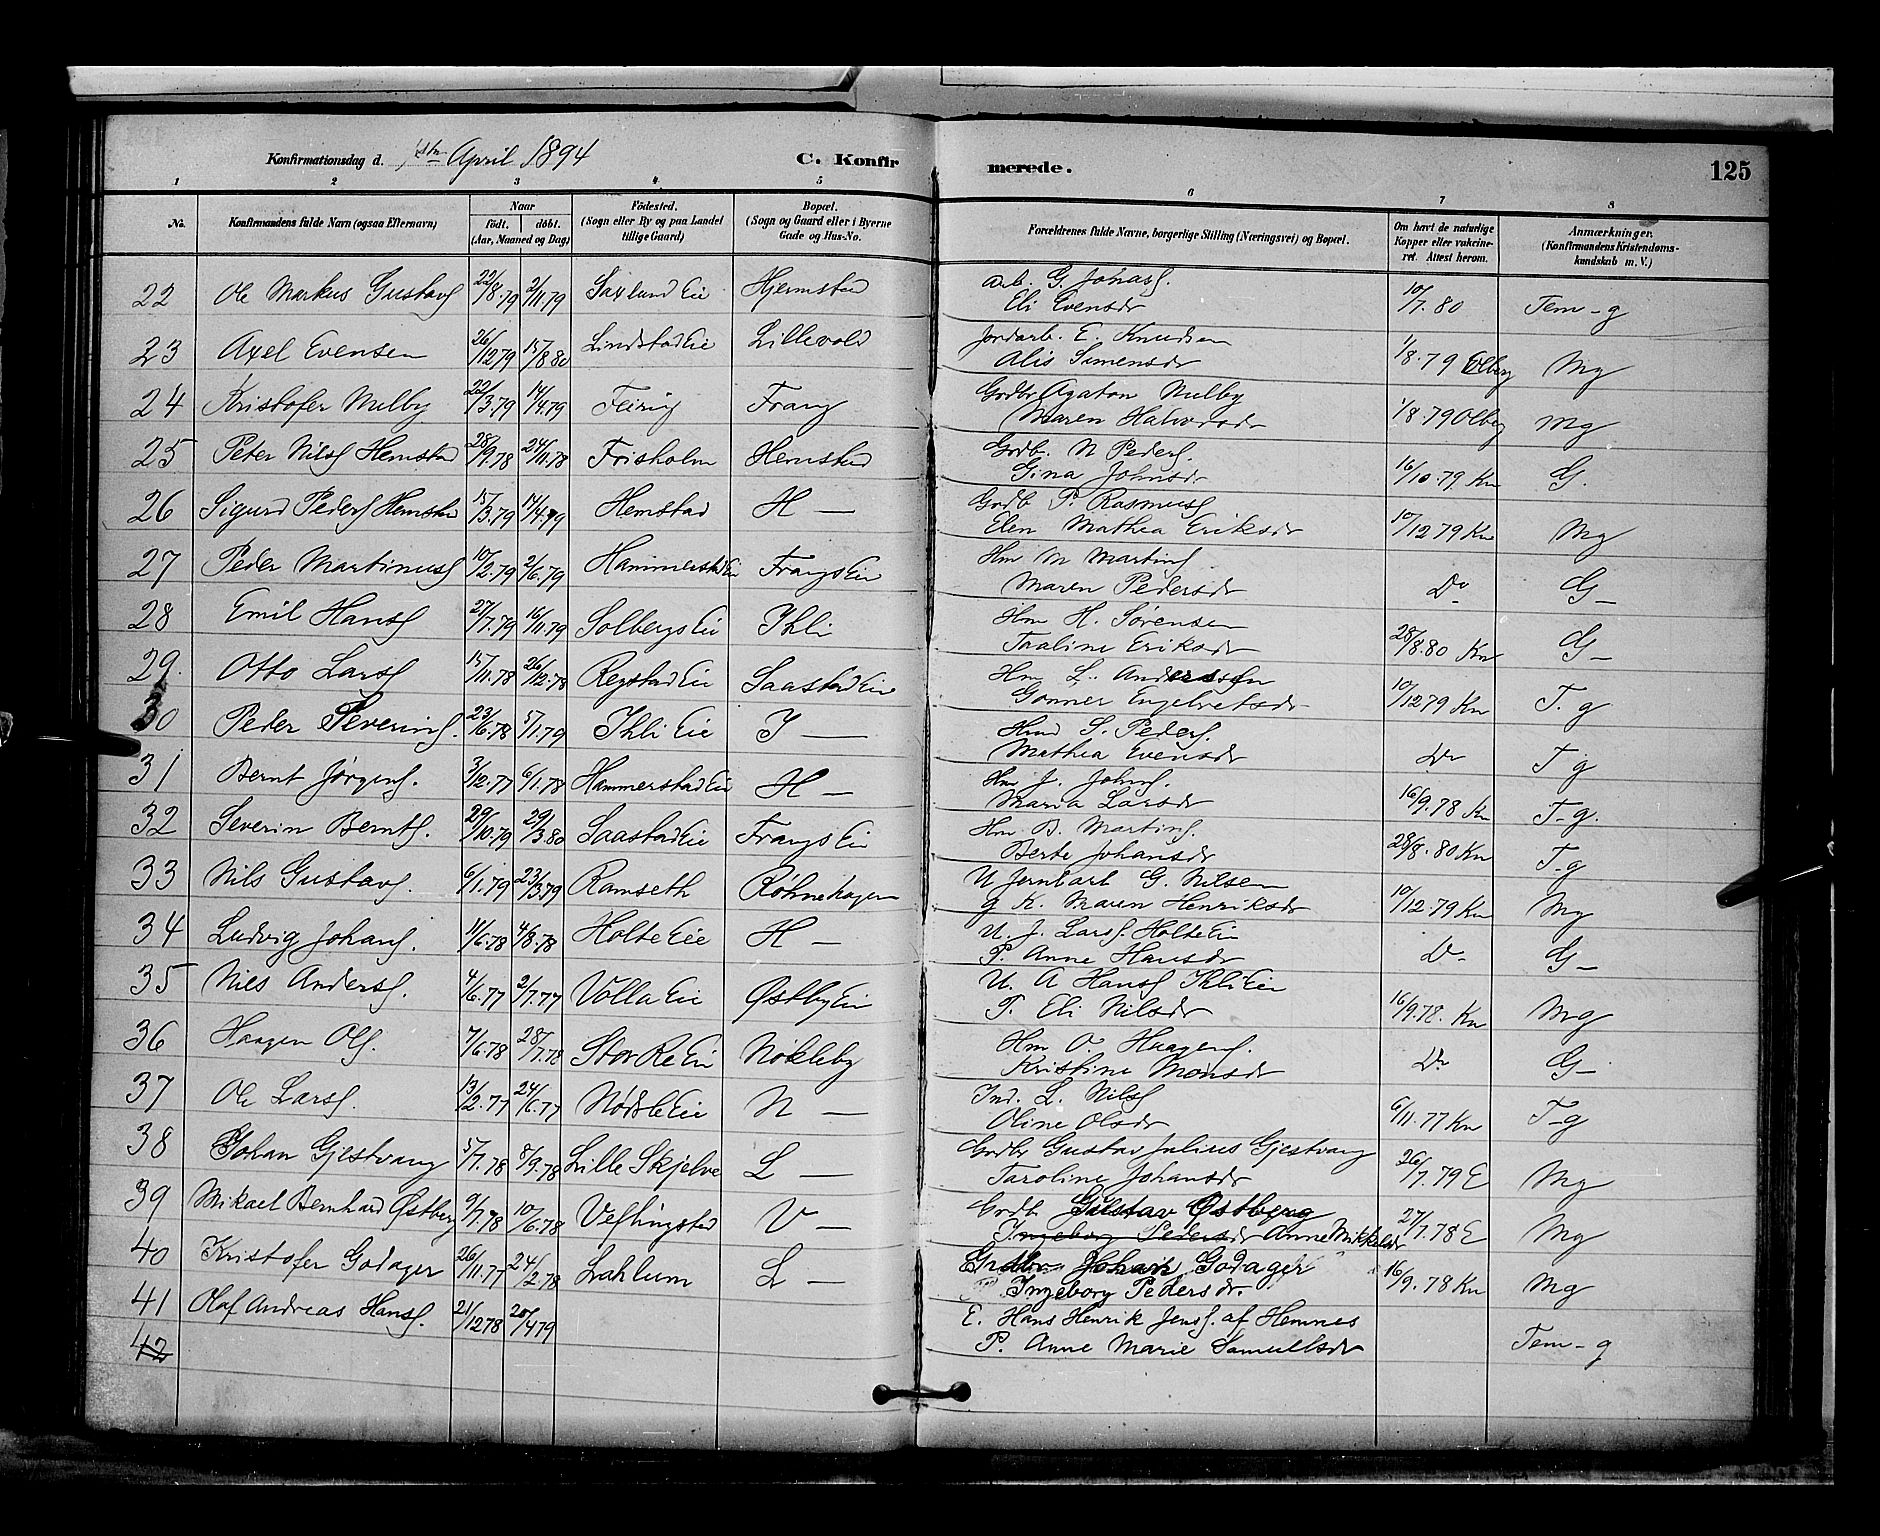 Konfirmationsdag d. 1ste April 1894 C. Konfirmerede. 125
1 2 3 4 5 6 7 8
No. Konfirmandens fulde Navn (ogsaa Efternavn) Naar födt. döbt. (Aar, Maaned og Dag) Födested. (Sogn eller By og paa Landet tillige Gaard) Bopæl. (Sogn og Gaard eller i Byerne Gade og Hus-No. Forældrenes fulde Navne, borgerlige Stilling (Næringsvei) og Bopæl. Om havt de naturlige Kopper eller vakcineret. Attest herom. Anmærkninger. (Konfirmandens Kristendomskundskab m. V.)
22 Ole Markus Gustavs 22/8.79 2/11.79 Saxlund Eie Hjemstad Arb. G. Johass. 10/7.80 Tem-g
Eli Evensdr
23 Axel Evensen 26/12.79 15/8.80 Lindstad Eie Lillevold Jordarb. E. Knudsen 1/8.79 Olberg Mg
Alis Simensdr
24 Kristofer Melby 22/3.79 14/4.79 Feiring Frang Grdbr Agaton Melby 1/8.79 Olberg Mg
Maren Halvorsdr
25 Peter Nilss Hemstad 28/9.78 24/11.78 Frisholm Hemstad Grdb. N Peders. 16/10.79 Kn G.
Gina Johnsdr
26 Sigurd Peders Hemstad 15/3.79 14/4.79 Hemstad H — Grdb P. Rasmuss 10/12 79 Kn Mg
Elen Mathea Eriksdr
27 Peder Martinuss 10/2.79 2/6.79 Hammerstad Eie Frangs Eie Hm M Martins Do G-
Maren Pedersdr
28 Emil Hanss 27/7.79 16/11.79 Solbergs Eie Ihli Hm H. Sørensen 28/8.80 Kn G-
Taaline Eriksdr
29. Otto Larss 15/11.78 26/12.78 Regstad Eie Saastad Eie Hm L. Anderssen 10/12 79 Kn T. g
Gonner Engelretsdr
30 Peder Severins. 23/6.78 5/1.79 Ihli Eie I — Hmd S. Peders. Do T g
Mathea Evensdr
31 Bernt Jørgens. 3/12.77 6/1.78 Hammerstad Eie H — Hm J. Johns. 16/9.78 Kn T-g.
Maria Larsdr
32 Severin Bernts. 29/10.79 29/3.80 Saastad Eie Frangs Eie Hm B. Martins. 28/8.80 Kn T-g
Berte Johansdr
33 Nils Gustavs. 6/1.79 23/3.79 Ramseth Rohnehagen U Jernbarb G. Nilsen 10/12.79 Kn Mg
g K. Maren Henriksdr
34 Ludvig Johans. 11/6.78 4/8.78 Holte Eie H — U. J. Larss. Holte Eie Do G-
P. Anne Hansdr
35 Nils Anderss. 4/6.77 2/7.77 Volla Eie Østby Eie U. A Hanss Ihli Eie 16/9.78. Kn Mg
P. Eli Nilsdr
36 Haagen Ols. 7/6.78 28/7.78 Stor Re Eie Nøkleby Hm O. Haagens. Do G-
Kristine Monsdr
37 Ole Larss. 13/2.77 24/6.77 Nødsle Eie N — Ind. L. Nilss 6/11.77 Kn T-g
Oline Olsdr
38 Johan Gjestvang 5/7.78 8/9.78 Lille Skjelve L — Grdbr Gustav Julius Gjestvang 26/7.79 E Mg
Taroline Johansdr
39 Mikael Bernhard Østberg 9/7.78 10/6.78 Veflingstad V — Grdb Gustav Østberg 27/7.78 E Mg
Ingeborg Pedersdr Anne Mikkelsdr
40 Kristofer Godager 26/11.77 24/2.78 Lahlum L — Grdbr Johan Godager 16/9.78 Kn Mg
Ingeborg Pedersdr.
41 Olaf Andreas Hanss. 21/12 78 20/4 79 E. Hans Henrik Jenss. af Hemnes Tem-g
42 P. Anne Marie Samuelsdr